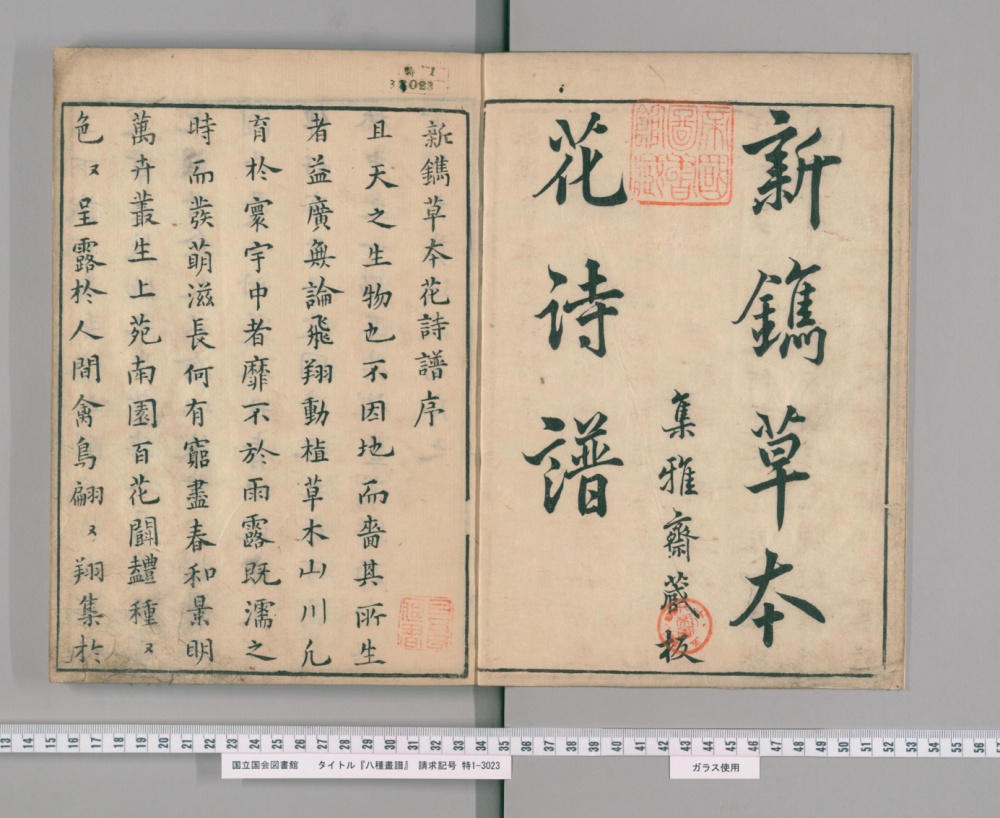 新鐫草本
花詩譜
集雅齋藏板
新鐫草本花詩譜序
且天之生物也不因地而嗇其所生
者益廣無論飛翔動植草木山川凢
育於寰宇中者靡不於雨露既濡之
時而發萌滋長何有窮盡春和景明
萬卉叢生上苑南園百花鬪豔種〻
色〻呈露於人間禽鳥翩〻翔集於
3023
13 14 15 16 17 18 19 20 21 22 23 24 25 26 27 28 29 30 31 32 33 34 35 36 37 38 39 40 41 42 43 44 45 46 47 48 49 50 51 52 53 54 55 56
国立国会図書館 タイトル『八種畫譜』 請求記号 特1-3023
ガラス使用